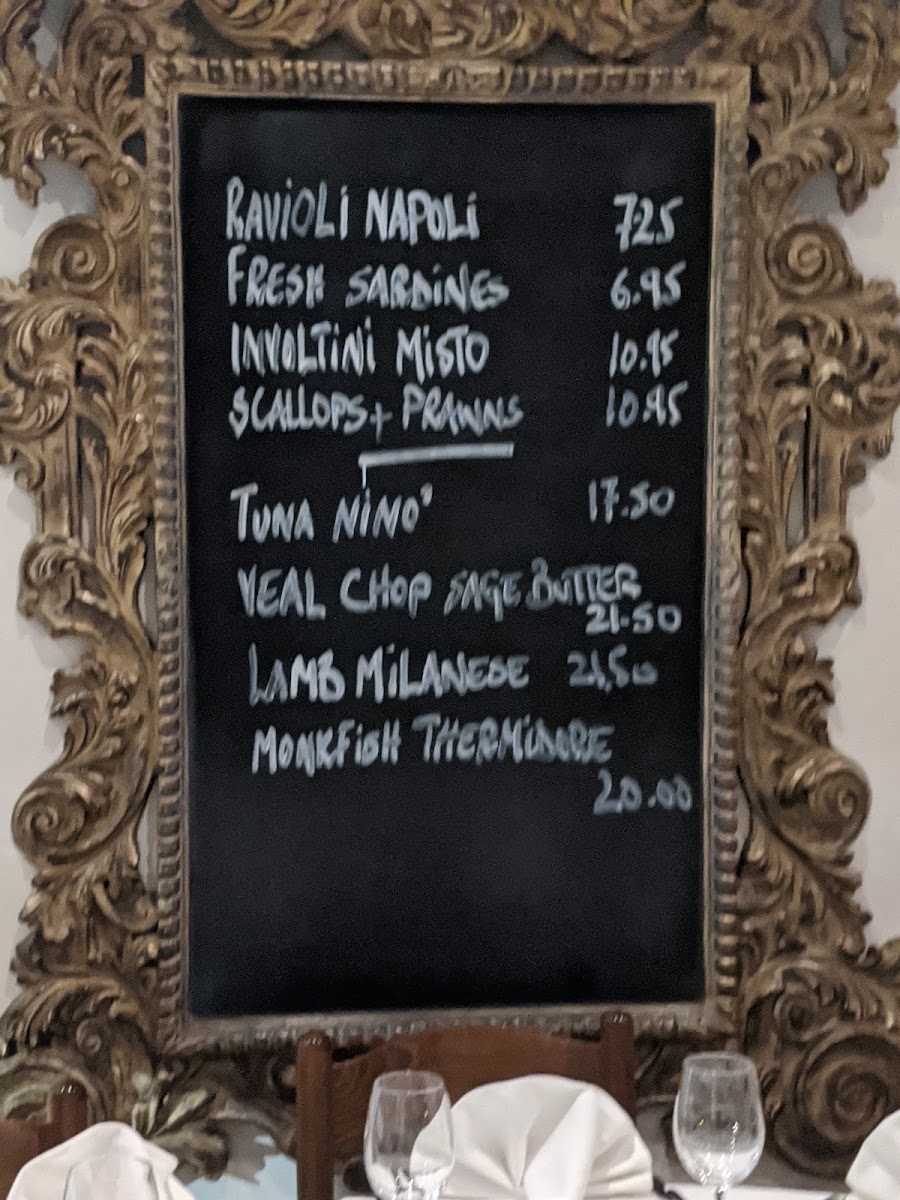 RAVIOLI NAPOLI 7.25
FRESH SARDINES 6.95
INVOLTINI MISTO 10.95
SCALLOPS + PRAWNS 10.95
TUNA NINO' 17.50
VEAL CHOP SAGE BUTTER
21.50
LAMB MILANESE 21,50
MONKFISH THERMIDORE
20.00